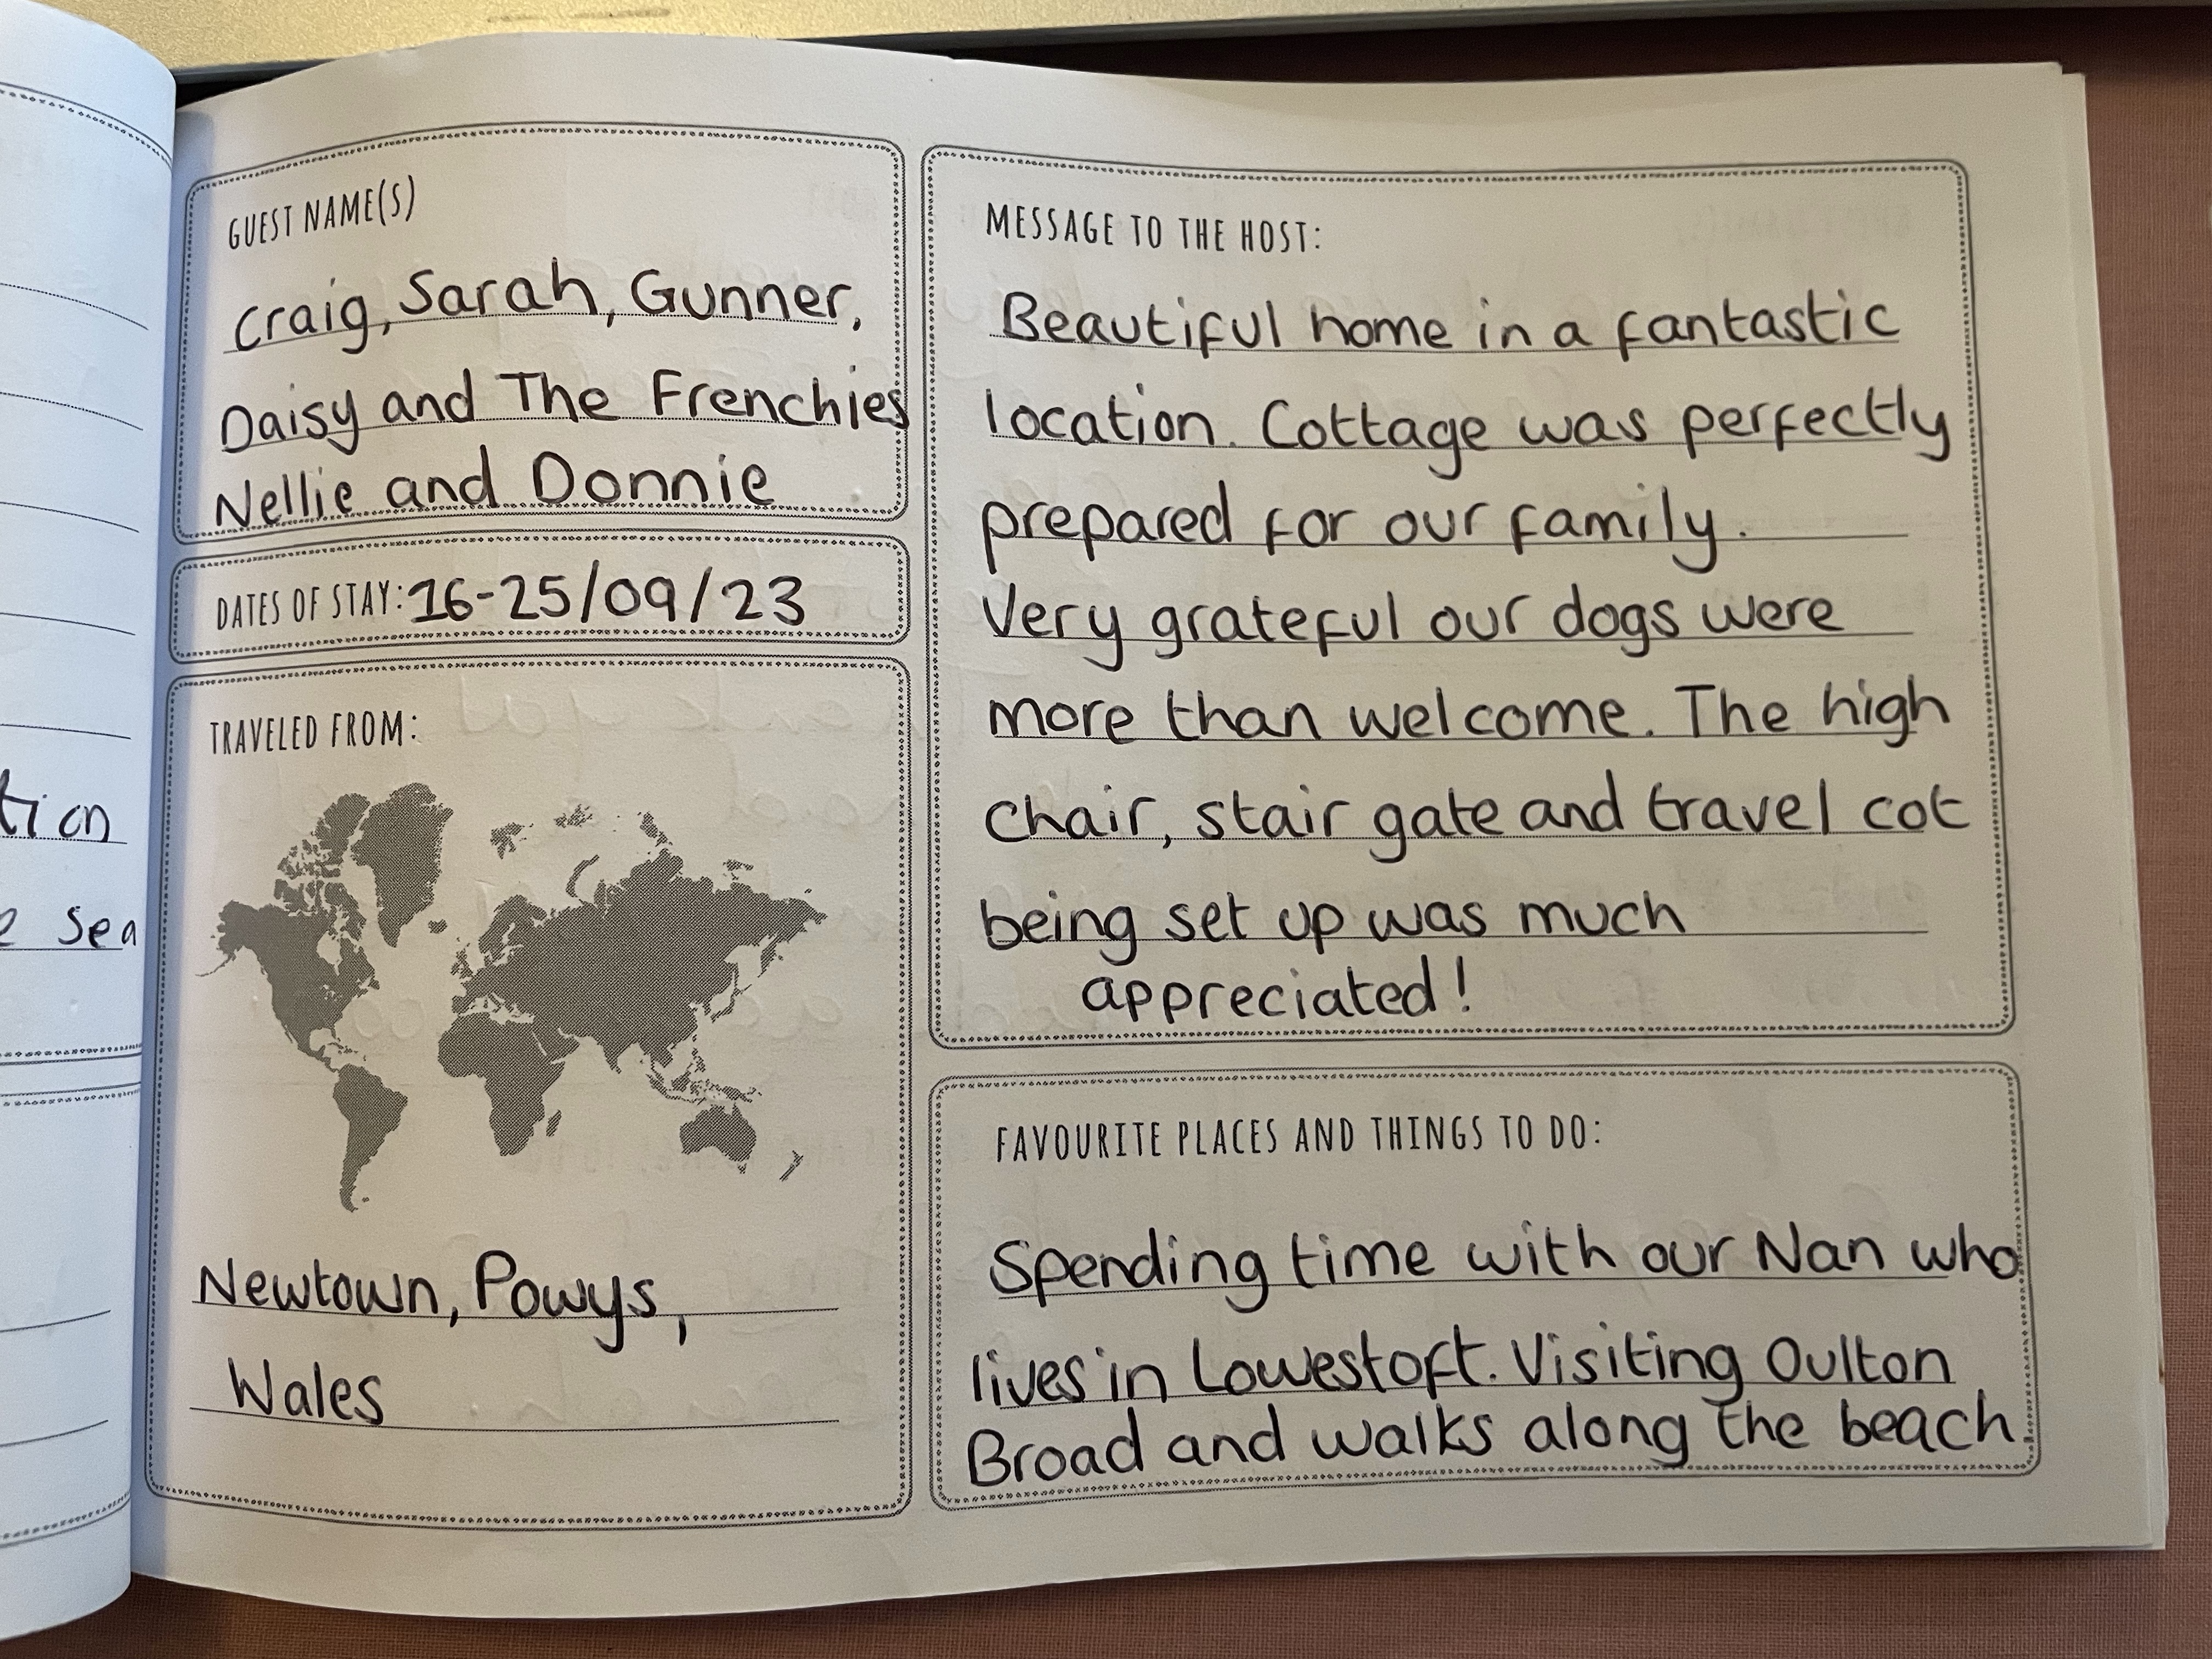 tion
e sea
GUEST NAME(S)
Craig, Sarah, Gunner,
Daisy and The Frenchies
Nellie and Donnie
DATES OF STAY: 16-25/09/23
TRAVELED FROM:
Newtown, Powys,
Wales
MESSAGE TO THE HOST:
Beautiful home in a fantastic
location. Cottage was perfectly
prepared for our family.
Very grateful our dogs were
more than welcome. The high
chair, stair gate and travel cot
being set up was much
appreciated!
FAVOURITE PLACES AND THINGS TO DO:
Spending time with our Nan who
lives in Lowestoft. Visiting Oulton
Broad and walks along the beach.